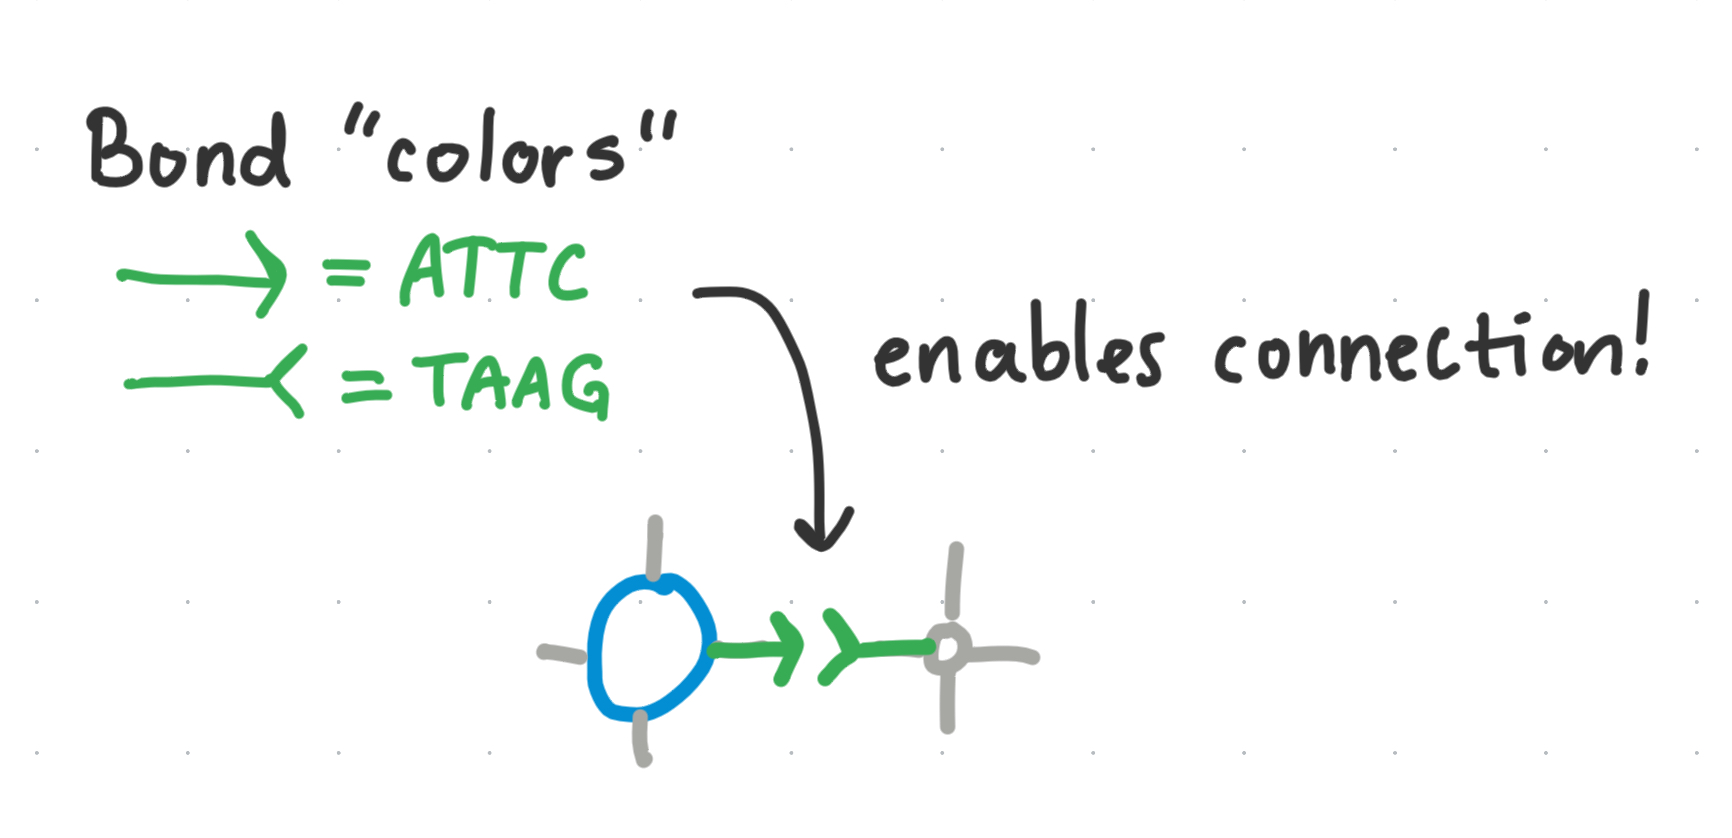 Bond "colors"
= ATTC
= TAAG
enables connection!